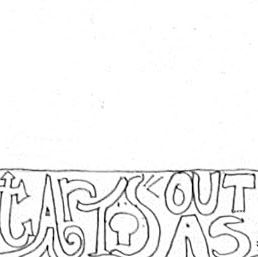 tARTS "OUT
AS